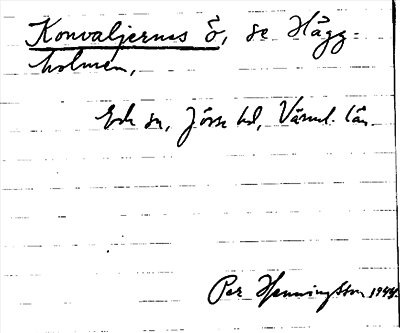 Konvaljernes Ö, se Hägg-
holmen,
Eds sn, Jösse hd, Värml. län
Per Henningsson 1944.